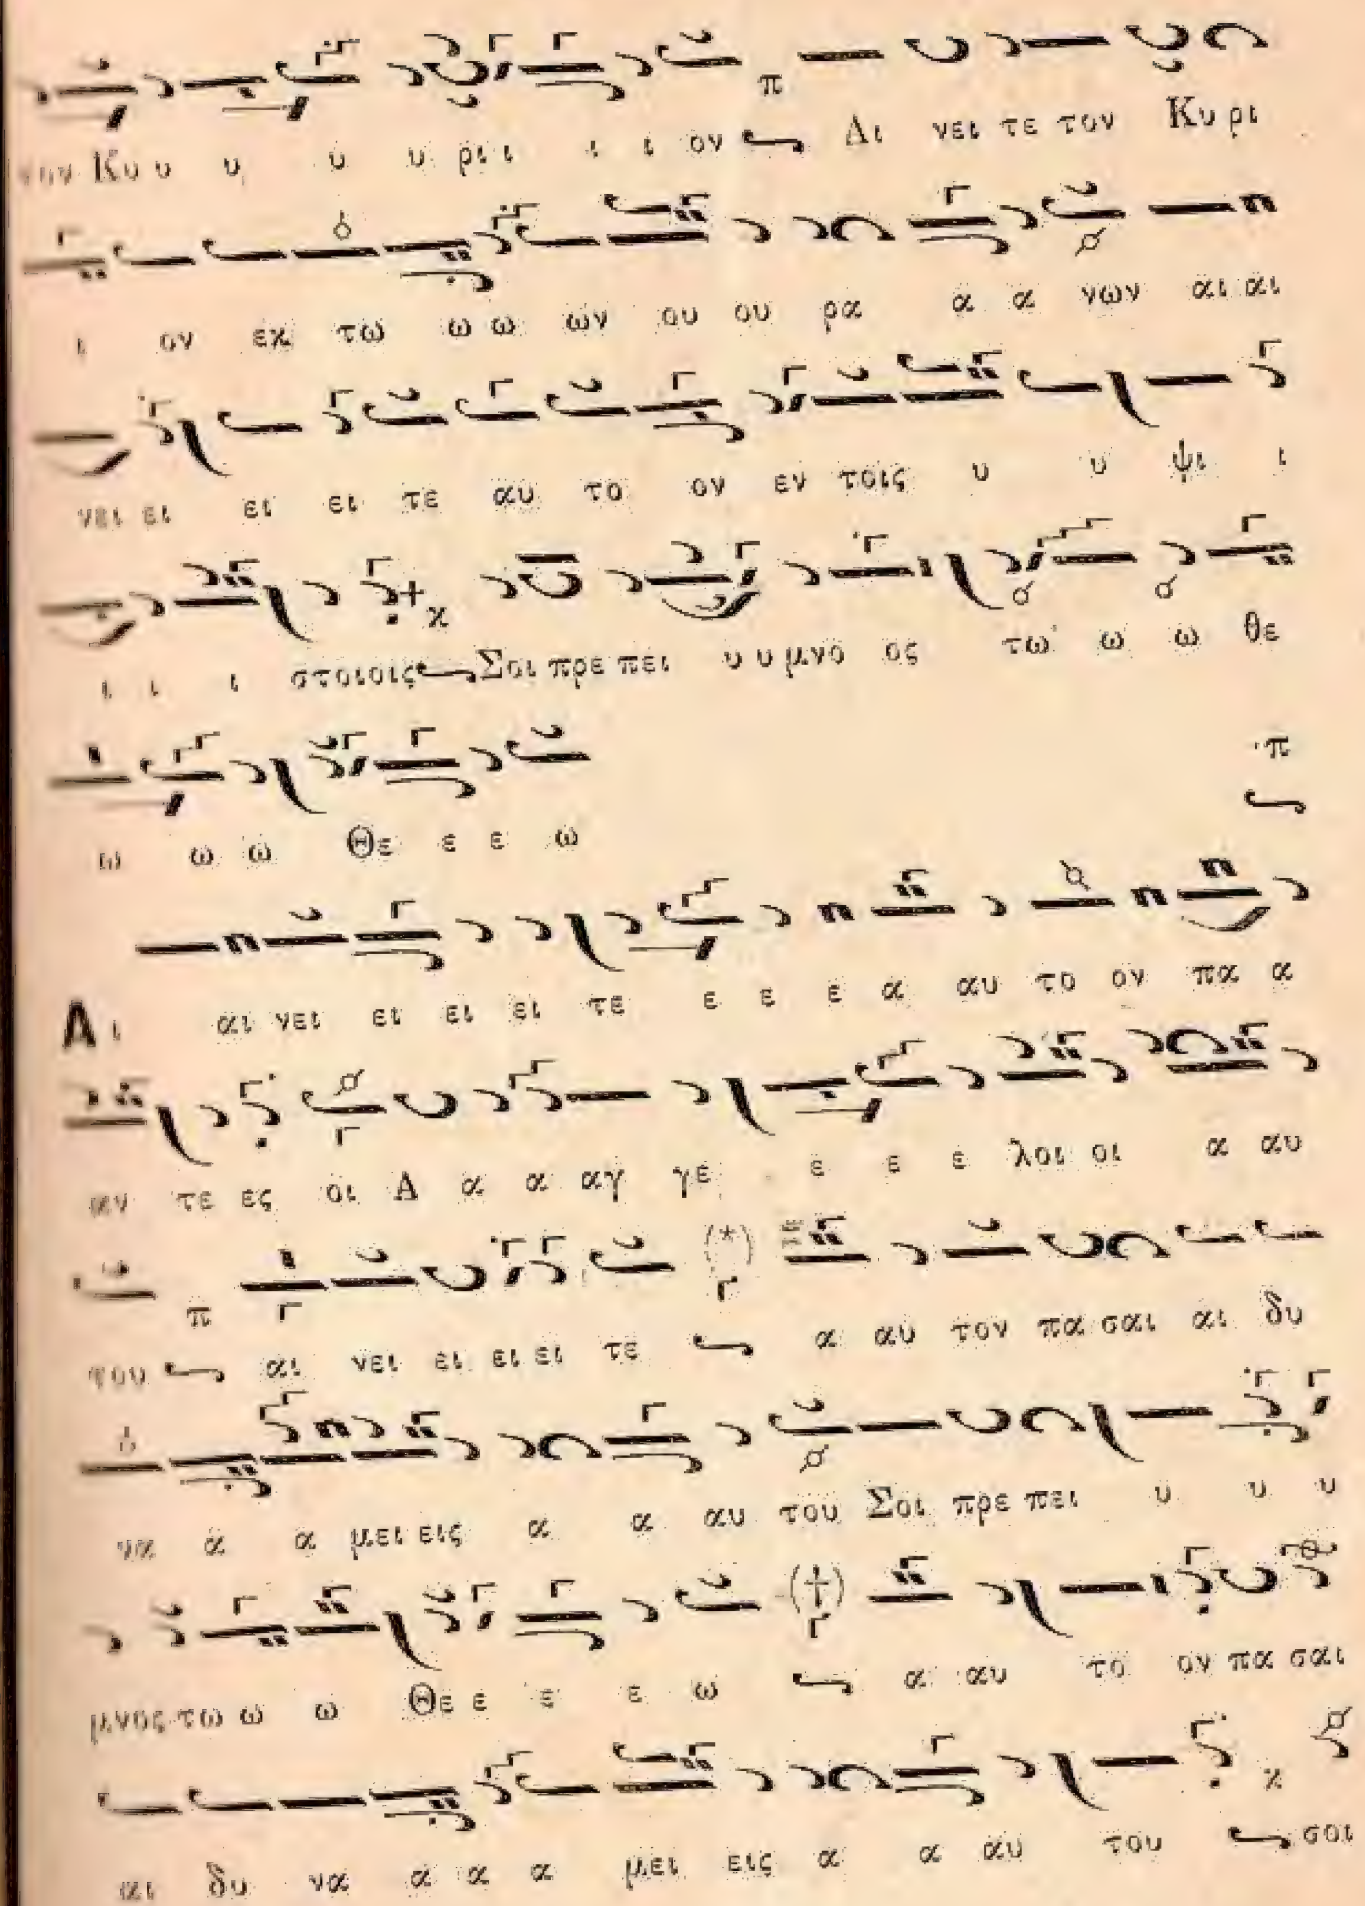 νον Κυ υ υ υ υ υ ρι ι ι ι ον Αι νει τε τον Κυ ρι
ι ον εκ τω ω ω ων ου ου ρα α α νων αι αι
νει ει ει ει τε αυ το ον εν τοις υ υ ψι ι
ι ι ι στοιοις Σοι πρε πει υ υ μνο ος τω ω ω θε
ω ω ω Θε ε ε ω
Αι αι νει ει ει ει τε ε ε ε α αυ το ον πα α
αν τε ες οι Α α α αγ γε ε ε ε λοι οι α αυ
του αι νει ει ει ει τε α αυ τον πα σαι αι δυ
να α α μει εις α α αυ του Σοι πρε πει υ υ υ
μνος τω ω ω Θε ε ε ε ω α αυ το ον πα σαι
αι δυ να α α α μει εις α α αυ του σοι